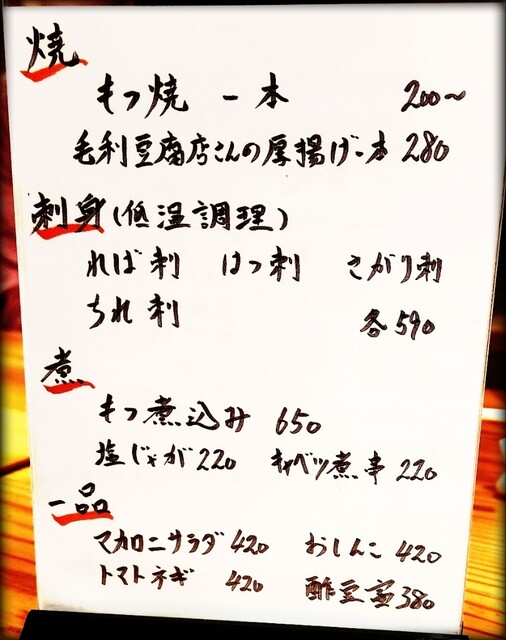 焼
もつ焼 一本 200〜
毛利豆腐店さんの厚揚げ一本 280
刺身(低温調理)
ればば刺 はつ刺 さがり刺
ちれ刺 各590
煮
もつ煮込み 650
塩じゃが220 キャベツ煮串 220
一品
マカロニサラダ 420 おしんこ 420
トマトネギ 420 酢豆富 380